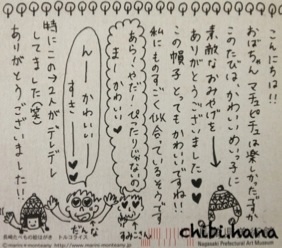 こんにちは!!
おばちゃん マチュピチュは楽しかったですか
このたびは、かわいいめいっ子に
素敵なおみやげを
ありがとうございました♥♥
この帽子とってもかわいいですね!!
私にものすごく似合っているそうです
あら!やだ!ぴったりじゃないの
まーかわいい♥
んーかわいいー
すきー
特にこの→2人が、デレデレ
してました(笑)
ありがとうございました!!
すみこさん
だんな
chibi.hana
Nagasaki Prefectural Art Museum
長崎たべもの絵はがき トルコライス
http://www.marini-monteany.jp